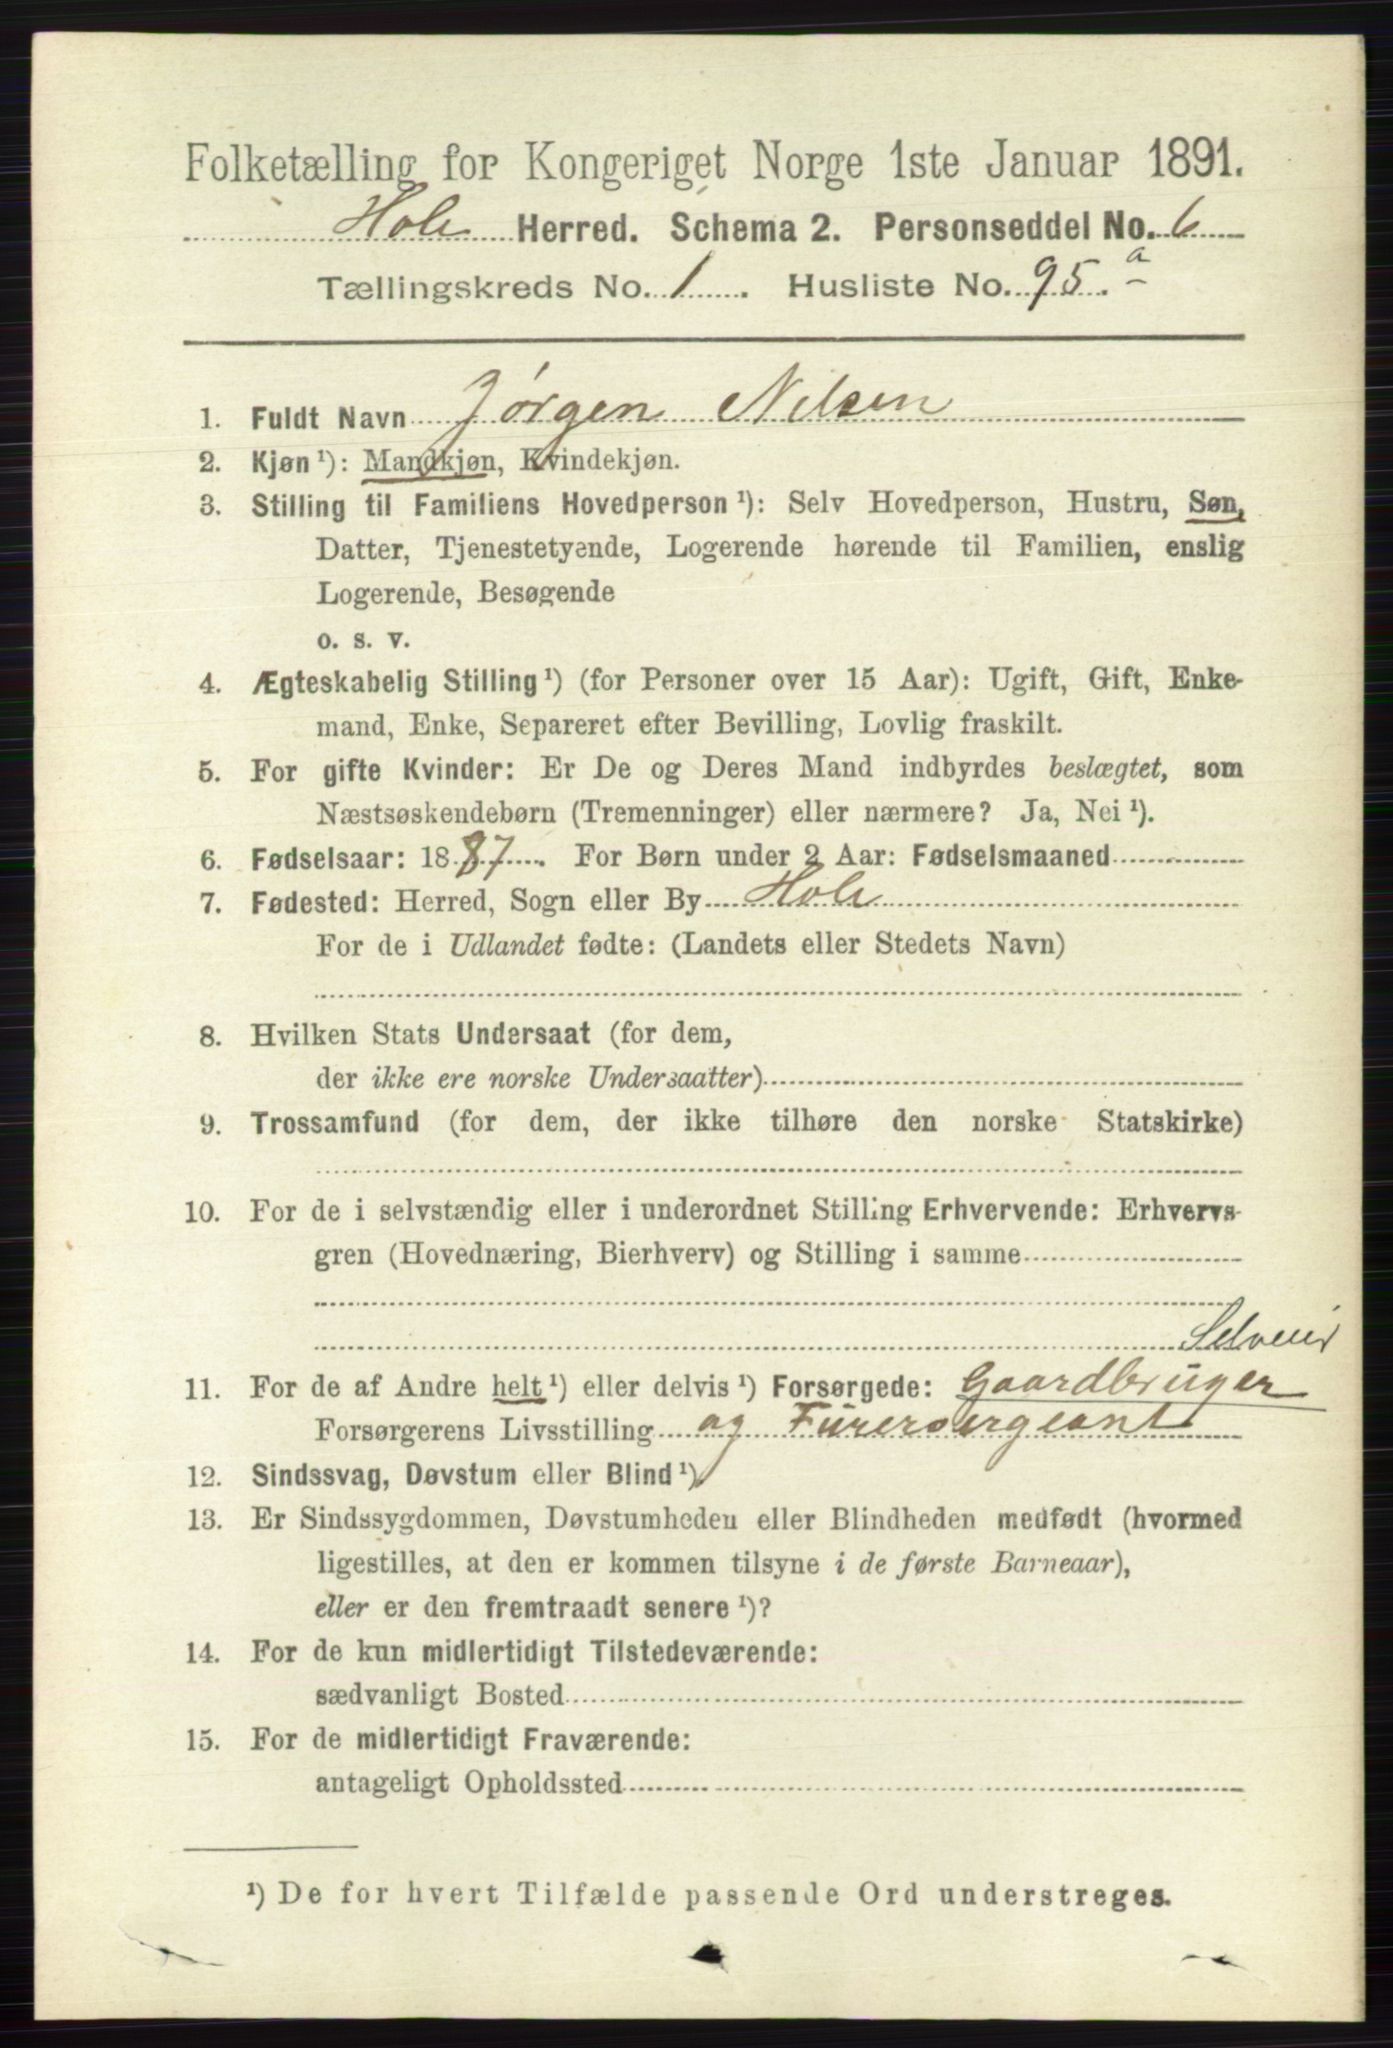 Folketælling for Kongeriget Norge 1ste Januar 1891.
Hole Herred. Schema 2. Personseddel No. 6
Tællingskreds No. 1. Husliste No. 95.a
1. Fuldt Navn Jørgen Nilsen
2. Kjøn¹): Mandkjøn, Kvindekjøn.
3. Stilling til Familiens Hovedperson¹): Selv Hovedperson, Hustru, Søn,
Datter, Tjenestetyende, Logerende hørende til Familien, enslig
Logerende, Besøgende
o. s. v.
4. Ægteskabelig Stilling¹) (for Personer over 15 Aar): Ugift, Gift, Enke-
mand, Enke, Separeret efter Bevilling, Lovlig fraskilt.
5. For gifte Kvinder: Er De og Deres Mand indbyrdes beslægtet, som
Næstsøskendebørn (Tremenninger) eller nærmere? Ja, Nei¹).
6. Fødselsaar: 1887. For Børn under 2 Aar: Fødselsmaaned
7. Fødested: Herred, Sogn eller By Hole
For de i Udlandet fødte: (Landets eller Stedets Navn)
8. Hvilken Stats Undersaat (for dem,
der ikke ere norske Undersaatter)
9. Trossamfund (for dem, der ikke tilhøre den norske Statskirke)
10. For de i selvstændig eller i underordnet Stilling Erhvervende: Erhvervs-
gren (Hovednæring, Bierhverv) og Stilling i samme
Selveier
11. For de af Andre helt¹) eller delvis¹) Forsørgede: Gaardbruger
Forsørgerens Livsstilling og Furersergeant
12. Sindssvag, Døvstum eller Blind¹)
13. Er Sindssygdommen, Døvstumheden eller Blindheden medfødt (hvormed
ligestilles, at den er kommen tilsyne i de første Barneaar),
eller er den fremtraadt senere¹)?
14. For de kun midlertidigt Tilstedeværende:
sædvanligt Bosted
15. For de midlertidigt Fraværende:
antageligt Opholdssted
¹) De for hvert Tilfælde passende Ord understreges.